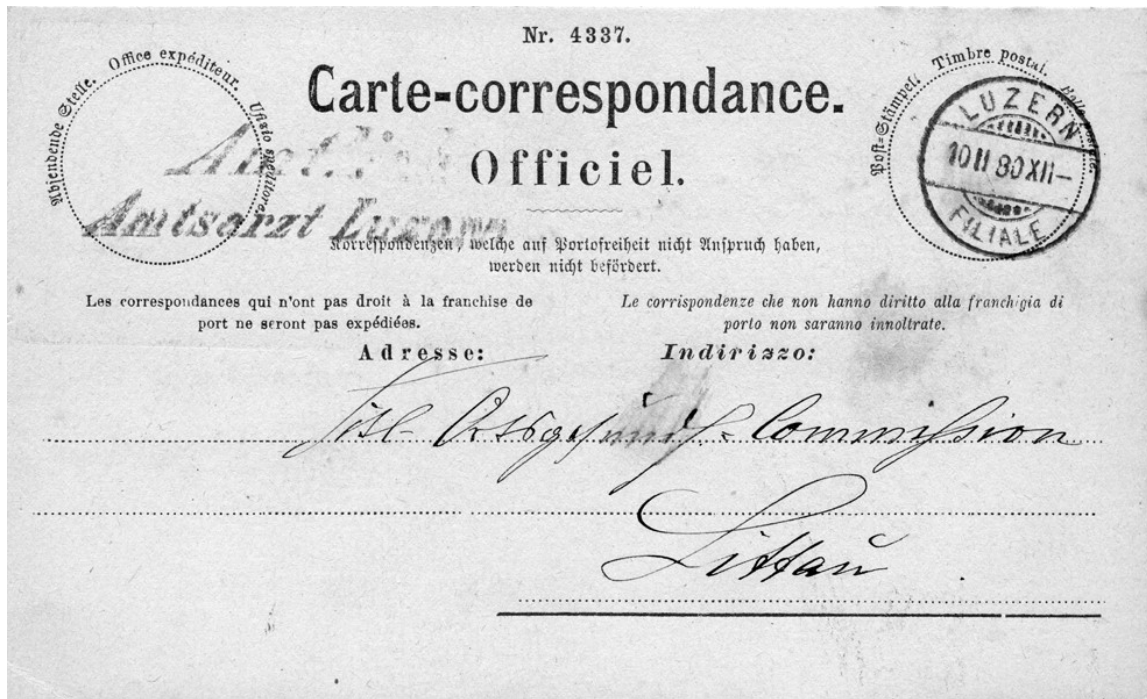 Nr. 4337.
Abſendende Stelle. Office expéditeur. Ufizio speditore.
Carte-correspondance.
Officiel.
Poſt-Stämpel. Timbre postal.
LUZERN
10 II 80 XII–
FILIALE
Amtsarzt Luzern
Korreſpondenzen, welche auf Portofreiheit nicht Anſpruch haben,
werden nicht befördert.
Les correspondances qui n'ont pas droit à la franchise de
port ne seront pas expédiées.
Le corrispondenze che non hanno diritto alla franchigia di
porto non saranno innoltrate.
Adresse: Indirizzo:
Titl. Ortsgesundh. Commission
Littau